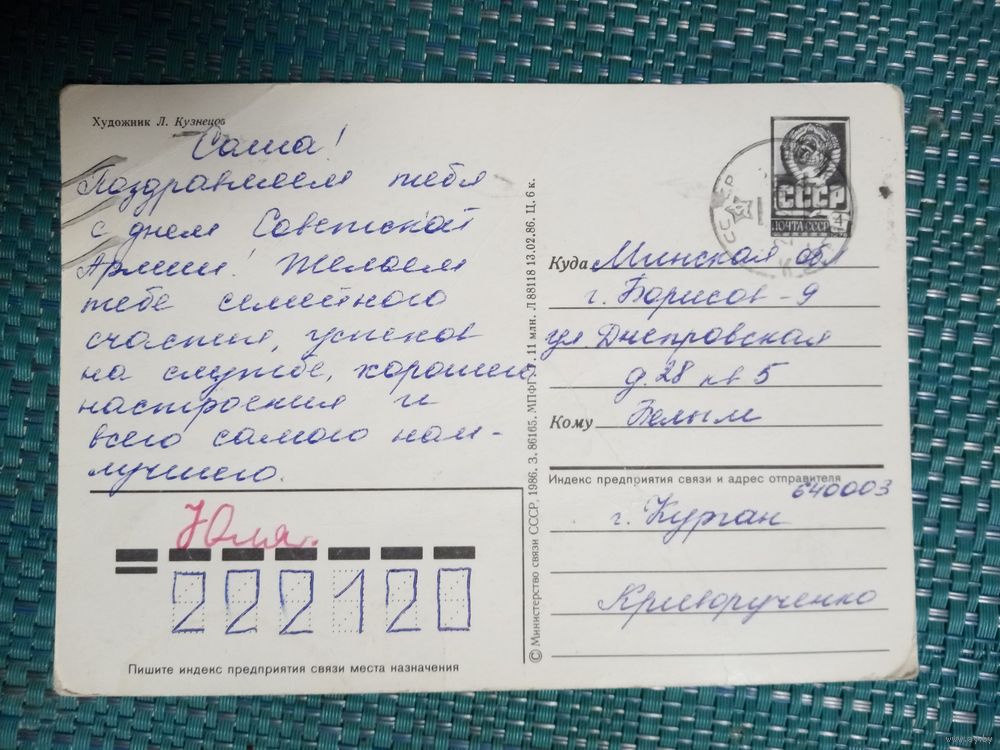 Художник Л. Кузнецов
Саша!
Поздравляем тебя
с днем Советской
Армии! Желаем
тебе семейного
счастия, успехов
на службе, хорошего
настроения и
всего самого наи-
лучшего.
Юля.
222120
Пишите индекс предприятия связи места назначения
© Министерство связи СССР, 1986. З. 86165. МПФГ. 11 млн. Л 88118 13.02.86. Ц. 6 к.
СССР
ПОЧТА СССР 4
Куда Минская обл
г. Борисов-9
ул Днепровская
д. 28 кв 5
Кому Белым
Индекс предприятия связи и адрес отправителя
640003
г. Курган
Криворученко